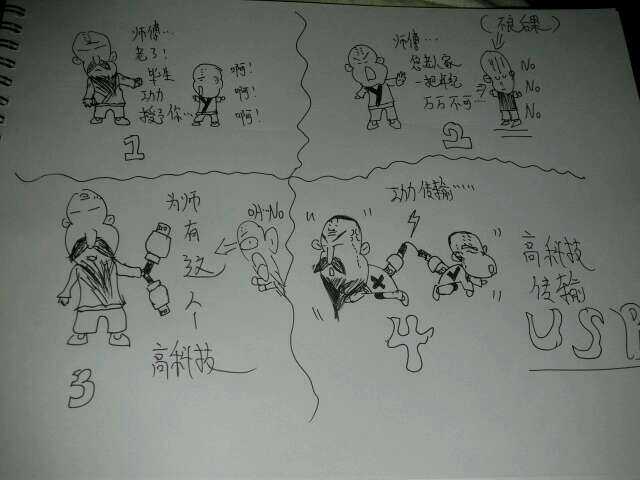 师傅…
老了!
毕生
功力
授予你…
啊!
啊!
啊!
1
师傅…
您老人家
一把年纪
万万不可…
No
No
No
2
为师
有
这
个
高科技
OH-No
3
功力传输……
高科技
传输
USB
4